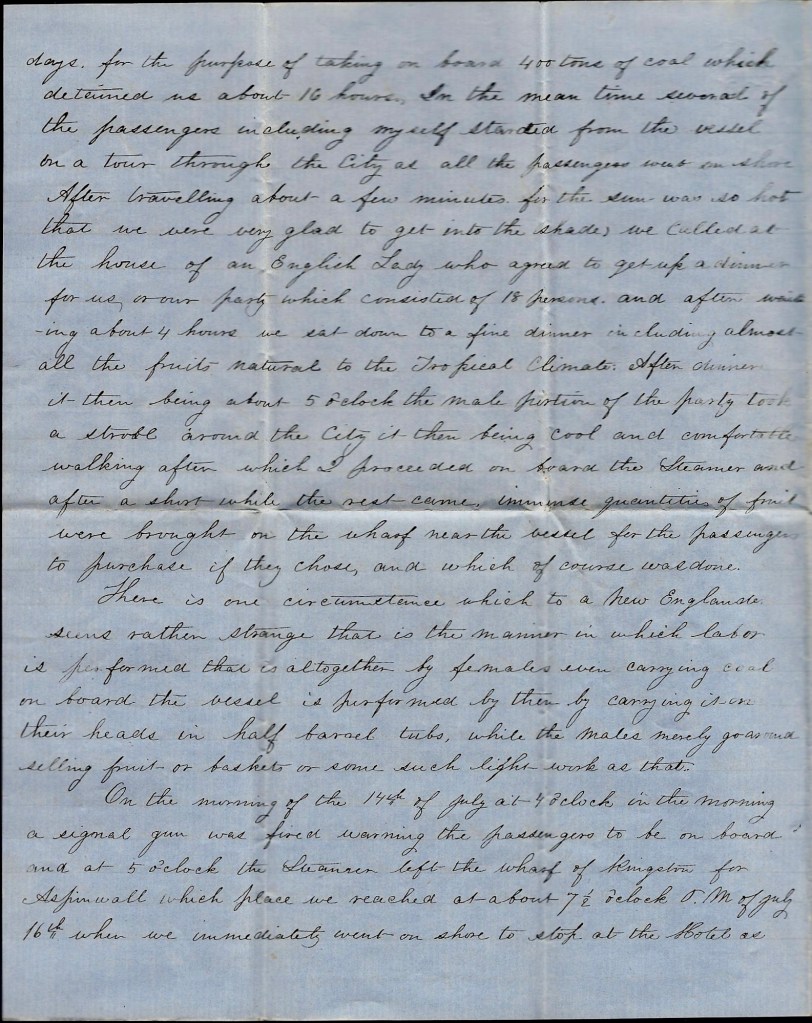 days. for the purpose of taking on board 400 tons of coal which
detained us about 16 hours, In the mean time several of
the passengers including myself started from the vessel
on a tour through the City as all the passengers went on shore
After travelling about a few minutes for the sun was so hot
that we were very glad to get into the shade, we called at
the house of an English Lady who agreed to get up a dinner
for us, or our party which consisted of 18 persons. and after wait
-ing about 4 hours we sat down to a fine dinner including almost
all the fruits natural to the Tropical Climate. After dinner
it then being about 5 o'clock the male portion of the party took
a stroll around the City it then being cool and comfortable
walking after which I proceeded on board the Steamer and
after a short while the rest came. immense quantities of fruit
were brought on the wharf near the vessel for the passengers
to purchase if they chose, and which of course was done.
There is one circumstance which to a New Englander
seems rather strange that is the manner in which labor
is performed that is altogether by females even carrying coal
on board the vessel is performed by then by carrying it on
their heads in half barrel tubs, while the males merely go around
selling fruit or baskets or some such light work as that.
On the morning of the 14th of July at 4 o'clock in the morning
a signal gun was fired warning the passengers to be on board
and at 5 o'clock the Steamer left the wharf of Kingston for
Aspinwall which place we reached at about 7½ o'clock P.M of July
16th when we immediately went on shore to stop at the Hotel as